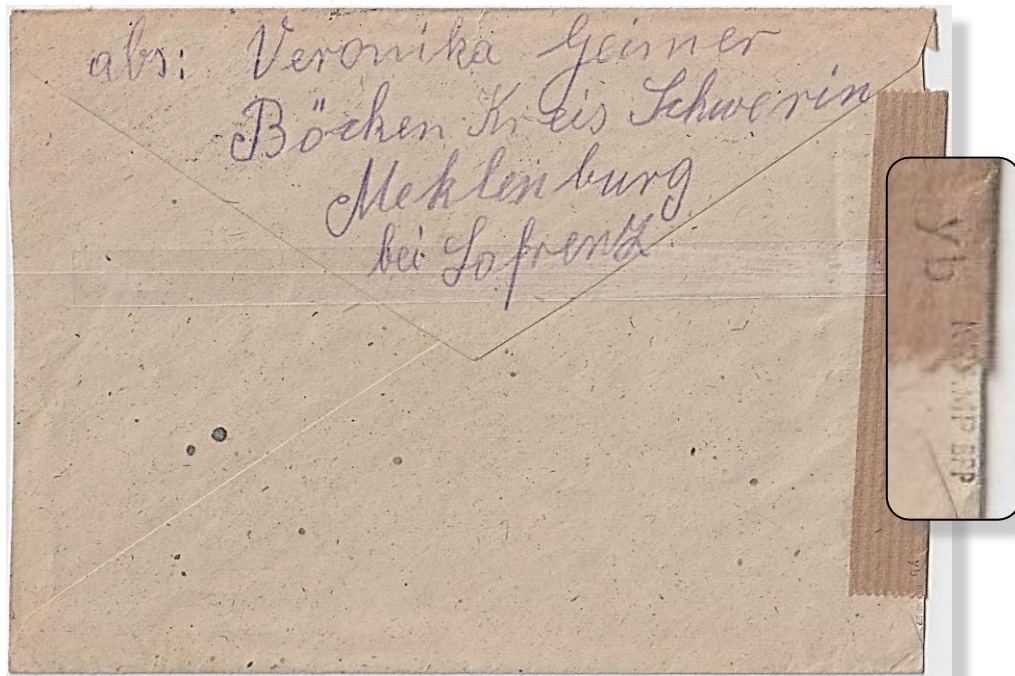 abs: Veronika Geimer
Böcken Kreis Schwerin
Meklenburg
bei Lofrenz
yb
MP BPP
yb